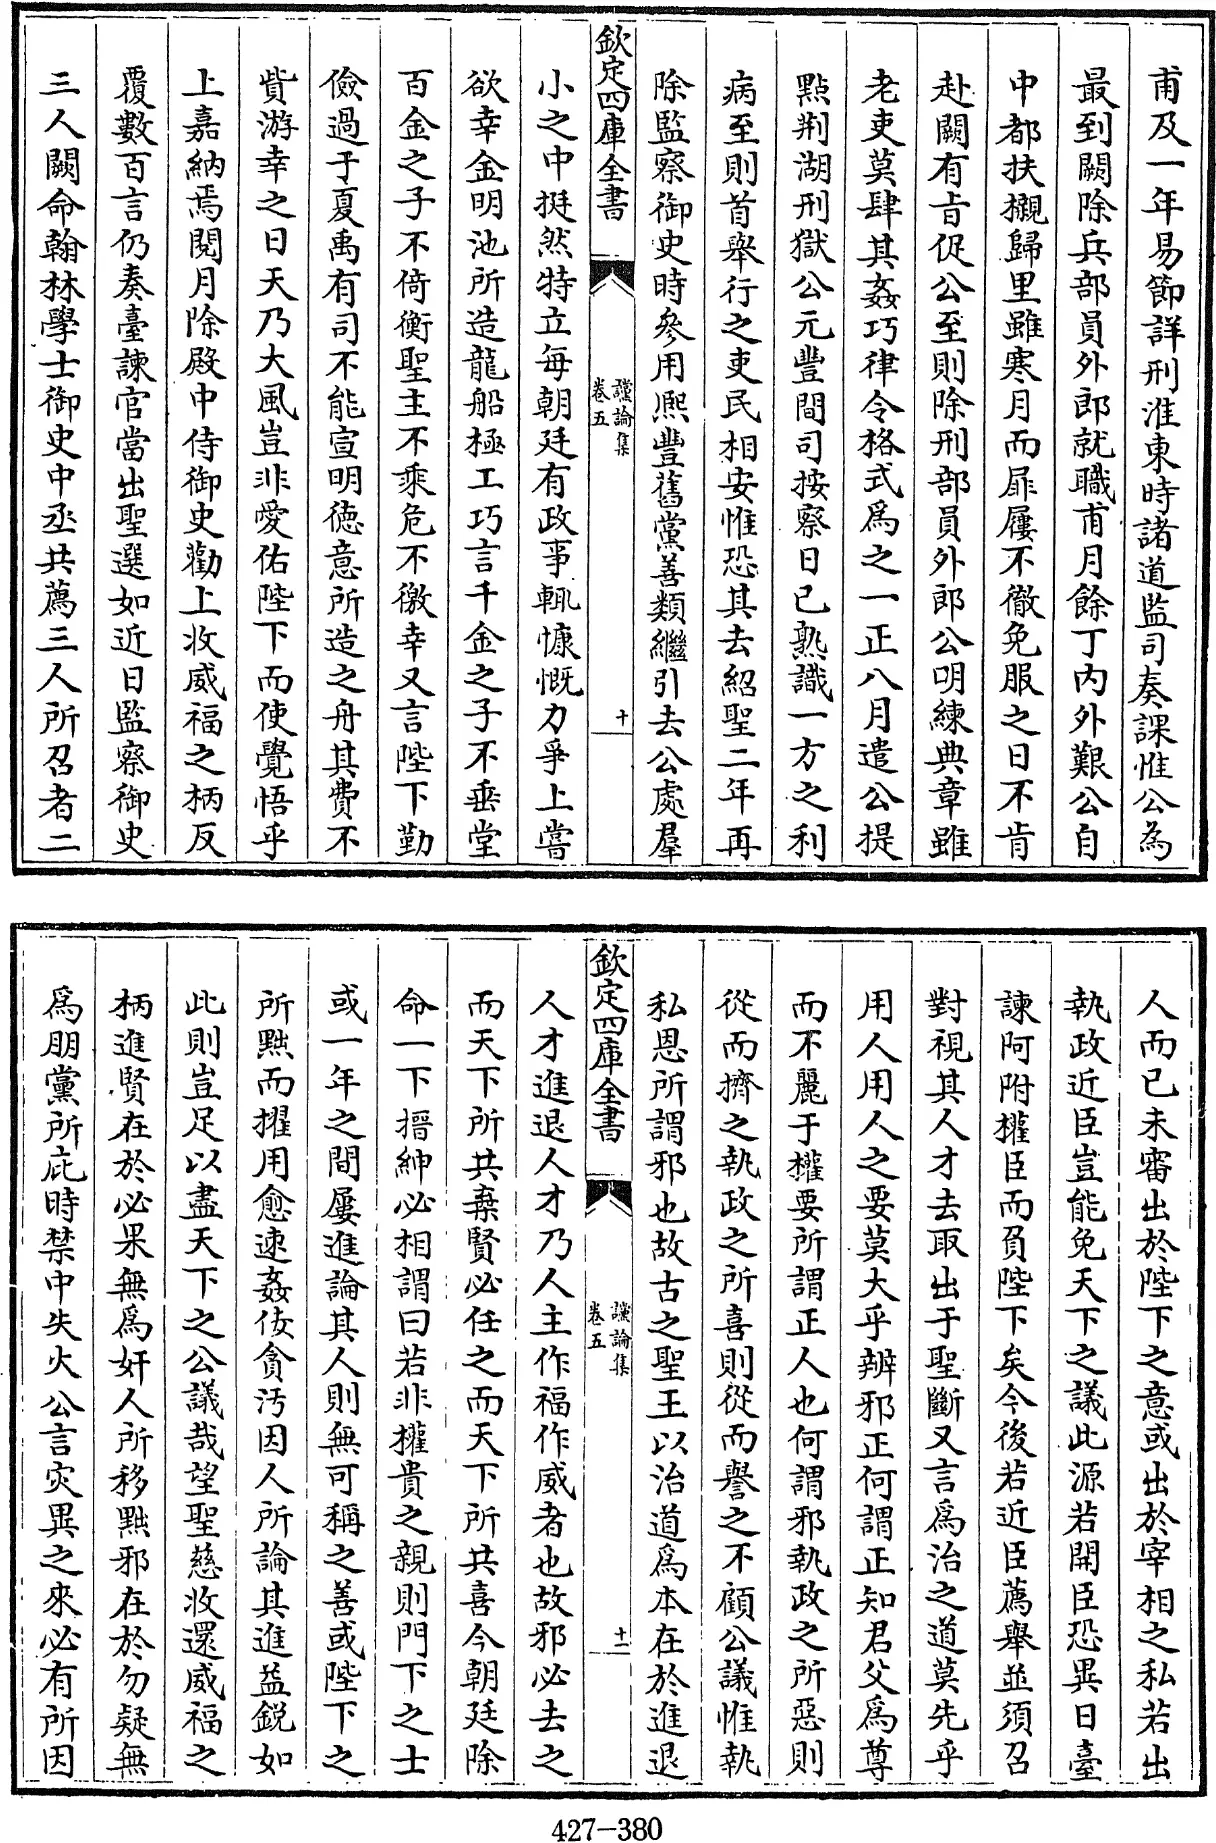 甫及一年易節詳刑淮東時諸道監司奏課惟公為
最到闕除兵部員外郎就職甫月餘丁内外艱公自
中都扶櫬歸里雖寒月而屝屨不徹免服之日不肯
赴闕有㫖促公至則除刑部員外郎公明練典章雖
老吏莫肆其姦巧律令格式爲之一正八月遣公提
點荆湖刑獄公元豐間司按察日已熟識一方之利
病至則首舉行之吏民相安惟恐其去紹聖二年再
除監察御史時參用熈豐舊黨善類繼引去公處羣
欽定四庫全書
讜論集
卷五
十
小之中挺然特立每朝廷有政事輙慷慨力爭上嘗
欲幸金明池所造龍船極工巧言千金之子不垂堂
百金之子不倚衡聖主不乘危不徼幸又言陛下勤
儉過于夏禹有司不能宣明德意所造之舟其費不
貲游幸之日天乃大風豈非愛佑陛下而使覺悟乎
上嘉納焉閱月除殿中侍御史勸上收威福之柄反
覆數百言仍奏臺諫官當出聖選如近日監察御史
三人闕命翰林學士御史中丞共薦三人所召者二
人而已未審出於陛下之意或出於宰相之私若出
執政近臣豈能免天下之議此源若開臣恐異日臺
諫阿附權臣而負陛下矣今後若近臣薦舉並須召
對視其人才去取出于聖斷又言爲治之道莫先乎
用人用人之要莫大乎辨邪正何謂正知君父爲尊
而不麗于權要所謂正人也何謂邪執政之所惡則
從而擠之執政之所喜則從而譽之不顧公議惟執
私恩所謂邪也故古之聖王以治道爲本在於進退
欽定四庫全書
讜論集
卷五
十一
人才進退人才乃人主作福作威者也故邪必去之
而天下所共棄賢必任之而天下所共喜今朝廷除
命一下搢紳必相謂曰若非權貴之親則門下之士
或一年之間屢進論其人則無可稱之善或陛下之
所黜而擢用愈速姦佞貪汚因人所論其進益銳如
此則豈足以盡天下之公議哉望聖慈收還威福之
柄進賢在於必果無爲奸人所移黜邪在於勿疑無
爲朋黨所庇時禁中失火公言灾異之來必有所因
427-380